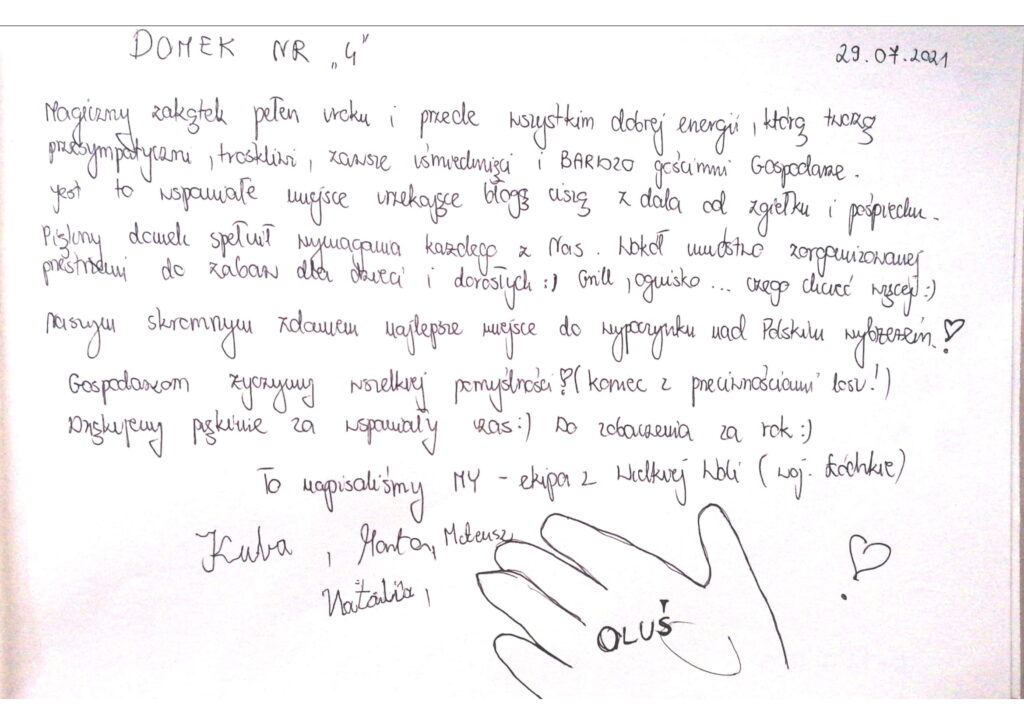 DOMEK NR „4”
29.07.2021
Magiczny zakątek pełen uroku i przede wszystkim dobrej energii, którą tworzą
przesympatyczni, troskliwi, zawsze uśmiechnięci i BARDZO gościnni Gospodarze.
Jest to wspaniałe miejsce urzekające błogą ciszą z dala od zgiełku i pośpiechu.
Piękny domek spełnił wymagania każdego z Nas. Wokół mnóstwo zorganizowanej
przestrzeni do zabaw dla dzieci i dorosłych :) Grill, ognisko... czego chcieć więcej :)
Naszym skromnym zdaniem najlepsze miejsce do wypoczynku nad Polskim wybrzeżem.
Gospodarzom życzymy wszelkiej pomyślności (koniec z przeciwnościami losu!)
Dziękujemy pięknie za wspaniały czas :) Do zobaczenia za rok :)
To napisaliśmy MY - ekipa z Wielkiej Woli (woj. Łódzkie)
Kuba, Marta, Mateusz
Natalia,
OLUŚ